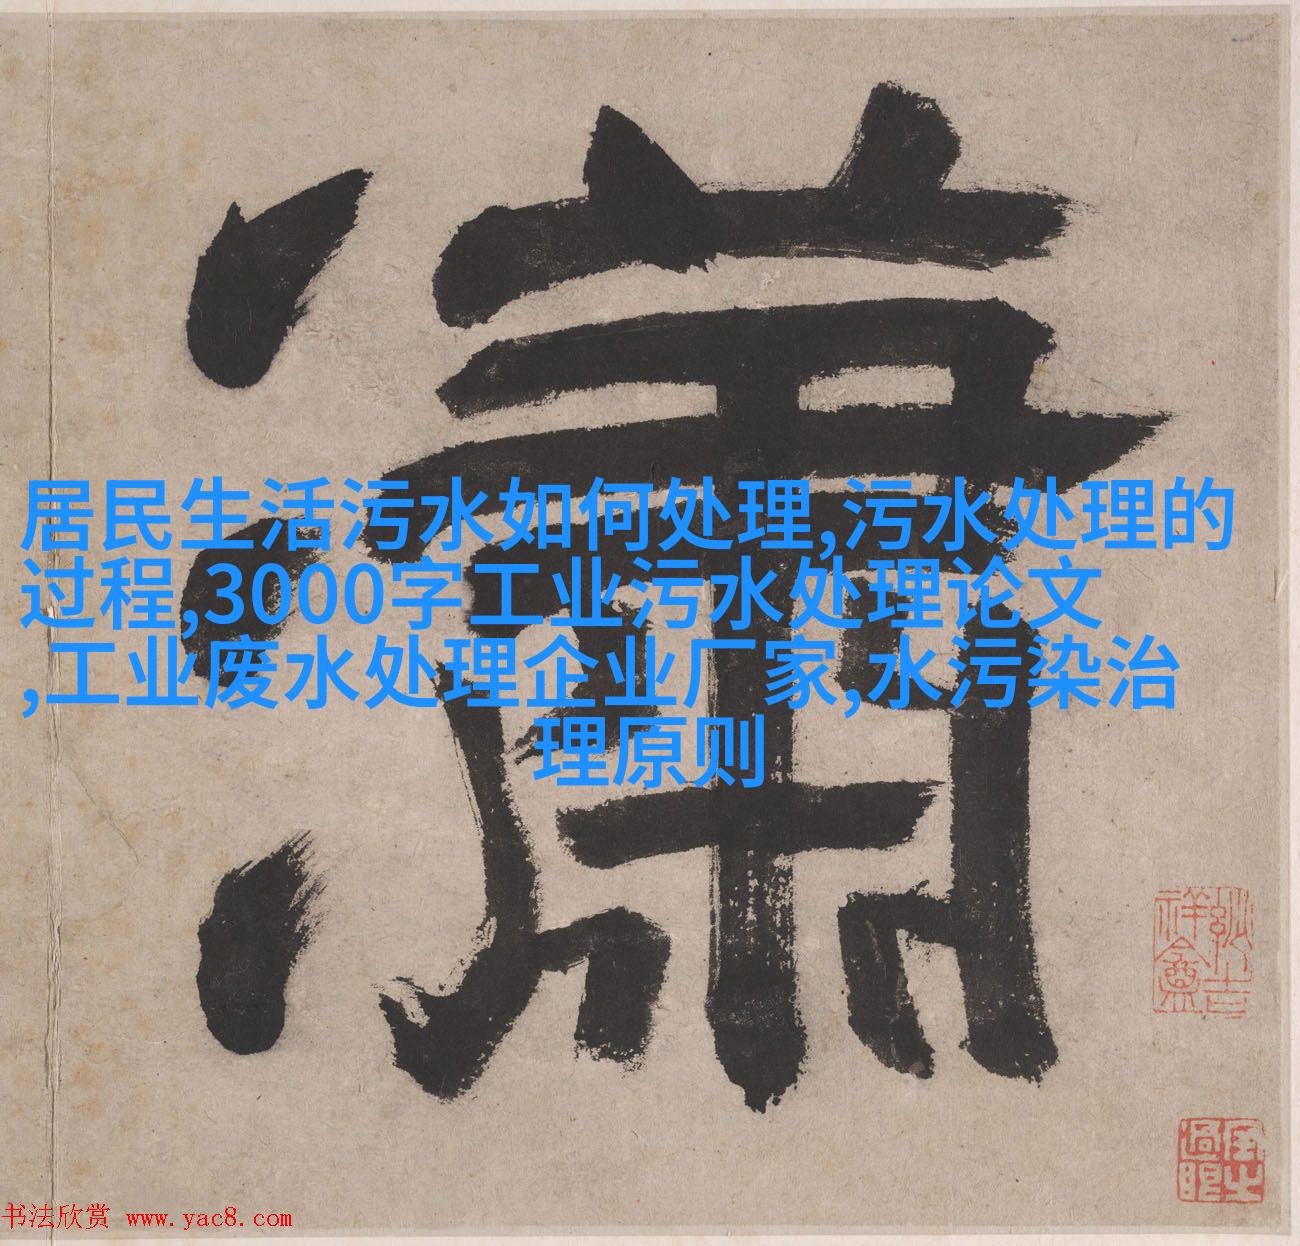 瀟
居民生活污水如何处理,污水处理的
过程,3000字工业污水处理论文
,工业废水处理企业厂家,水污染治
理原则
书法欣赏 www.yac8.com